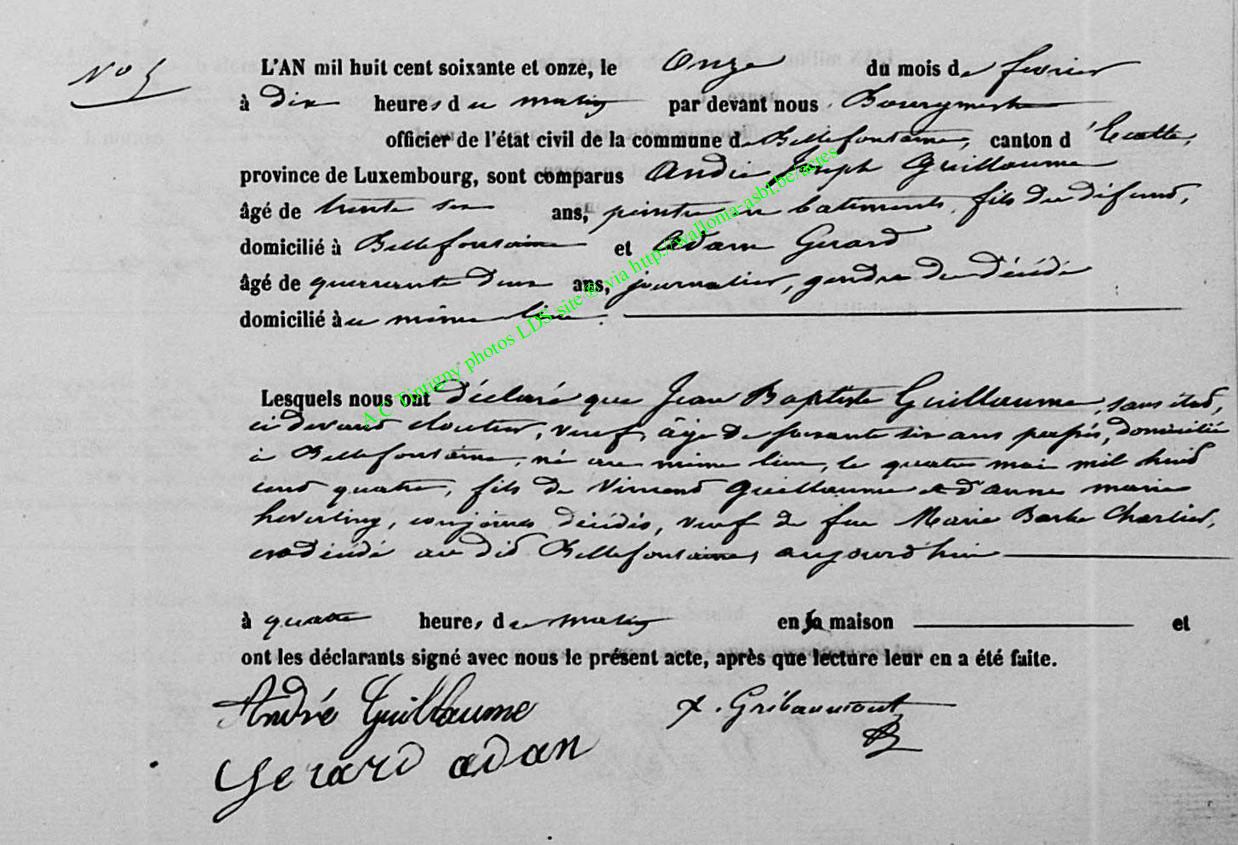 N° 5
L'AN mil huit cent soixante et onze, le Onze du mois de fevrier
à dix heures du matin par devant nous Bourgmestre
officier de l'état civil de la commune de Bellefontaine, canton d'Etalle,
province de Luxembourg, sont comparus André Joseph Guillaume
âgé de trente six ans, peintre en batiments, fils du défunt,
domicilié à Bellefontaine et Adam Gerard
âgé de quarante deux ans, journalier, gendre du décédé
domicilié au même lieu.
Lesquels nous ont déclaré que Jean Baptiste Guillaume, sans état,
ci devant cloutier, veuf, âgé de soixante six ans passés, domicilié
à Bellefontaine, né au même lieu, le quatre mai mil huit
cent quatre, fils de Vincent Guillaume et d'anne marie
heverling, conjoints décédés, veuf de feue Marie Barbe Charlier,
est décédé au dit Bellefontaine, aujourd'hui
à quatre heures du matin en sa maison et
ont les déclarants signé avec nous le présent acte, après que lecture leur en a été faite.
André Guillaume x. Gribaumont
Gerard adan
A.C Tintigny photos LDS site @ via http://wallonia-asbl.be/actes